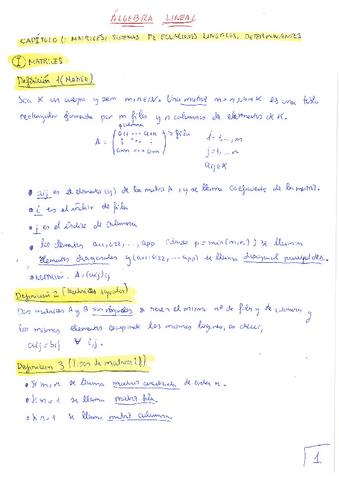 ÁLGEBRA LINEAL
CAPÍTULO 1: MATRICES, SISTEMAS DE ECUACIONES LINEALES, DETERMINANTES
I MATRICES
Definición 1 (Matriz)
Sea K un cuerpo y sean m,n∈ℕ. Una matriz m×n sobre K es una tabla
rectangular formada por m filas y n columnas de elementos de K.
columna
A = (a11 ... a1n ... am1 ... amn) → fila
i=1,...,m
j=1,...,n
aij∈K
• aij es el elemento (i,j) de la matriz A, y se llama coeficiente de la matriz.
• i es el índice de fila
• j es el índice de columna
• Los elementos a11, a22, ..., app (donde p = min(m,n)) se llaman
elementos diagonales y (a11, a22, ..., app) se llama diagonal principal de A.
• NOTACIÓN: A = (aij)ij
Definición 2 (Matrices iguales)
Dos matrices A y B son iguales si tienen el mismo nº de filas y de columnas y
los mismos elementos ocupando los mismos lugares, es decir,
aij = bij ∀ i,j.
Definición 3 (Tipos de matrices)
• Si m=n se llama matriz cuadrada de orden n.
• Si m=1 se llama matriz fila
• Si n=1 se llama matriz columna
1